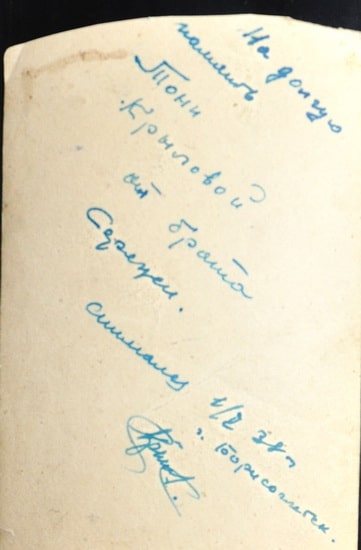 На долгую
память
Тони
Крыловой
от брата
Сережи.
снимался 1/2 38 г
г. Борисоглебск.